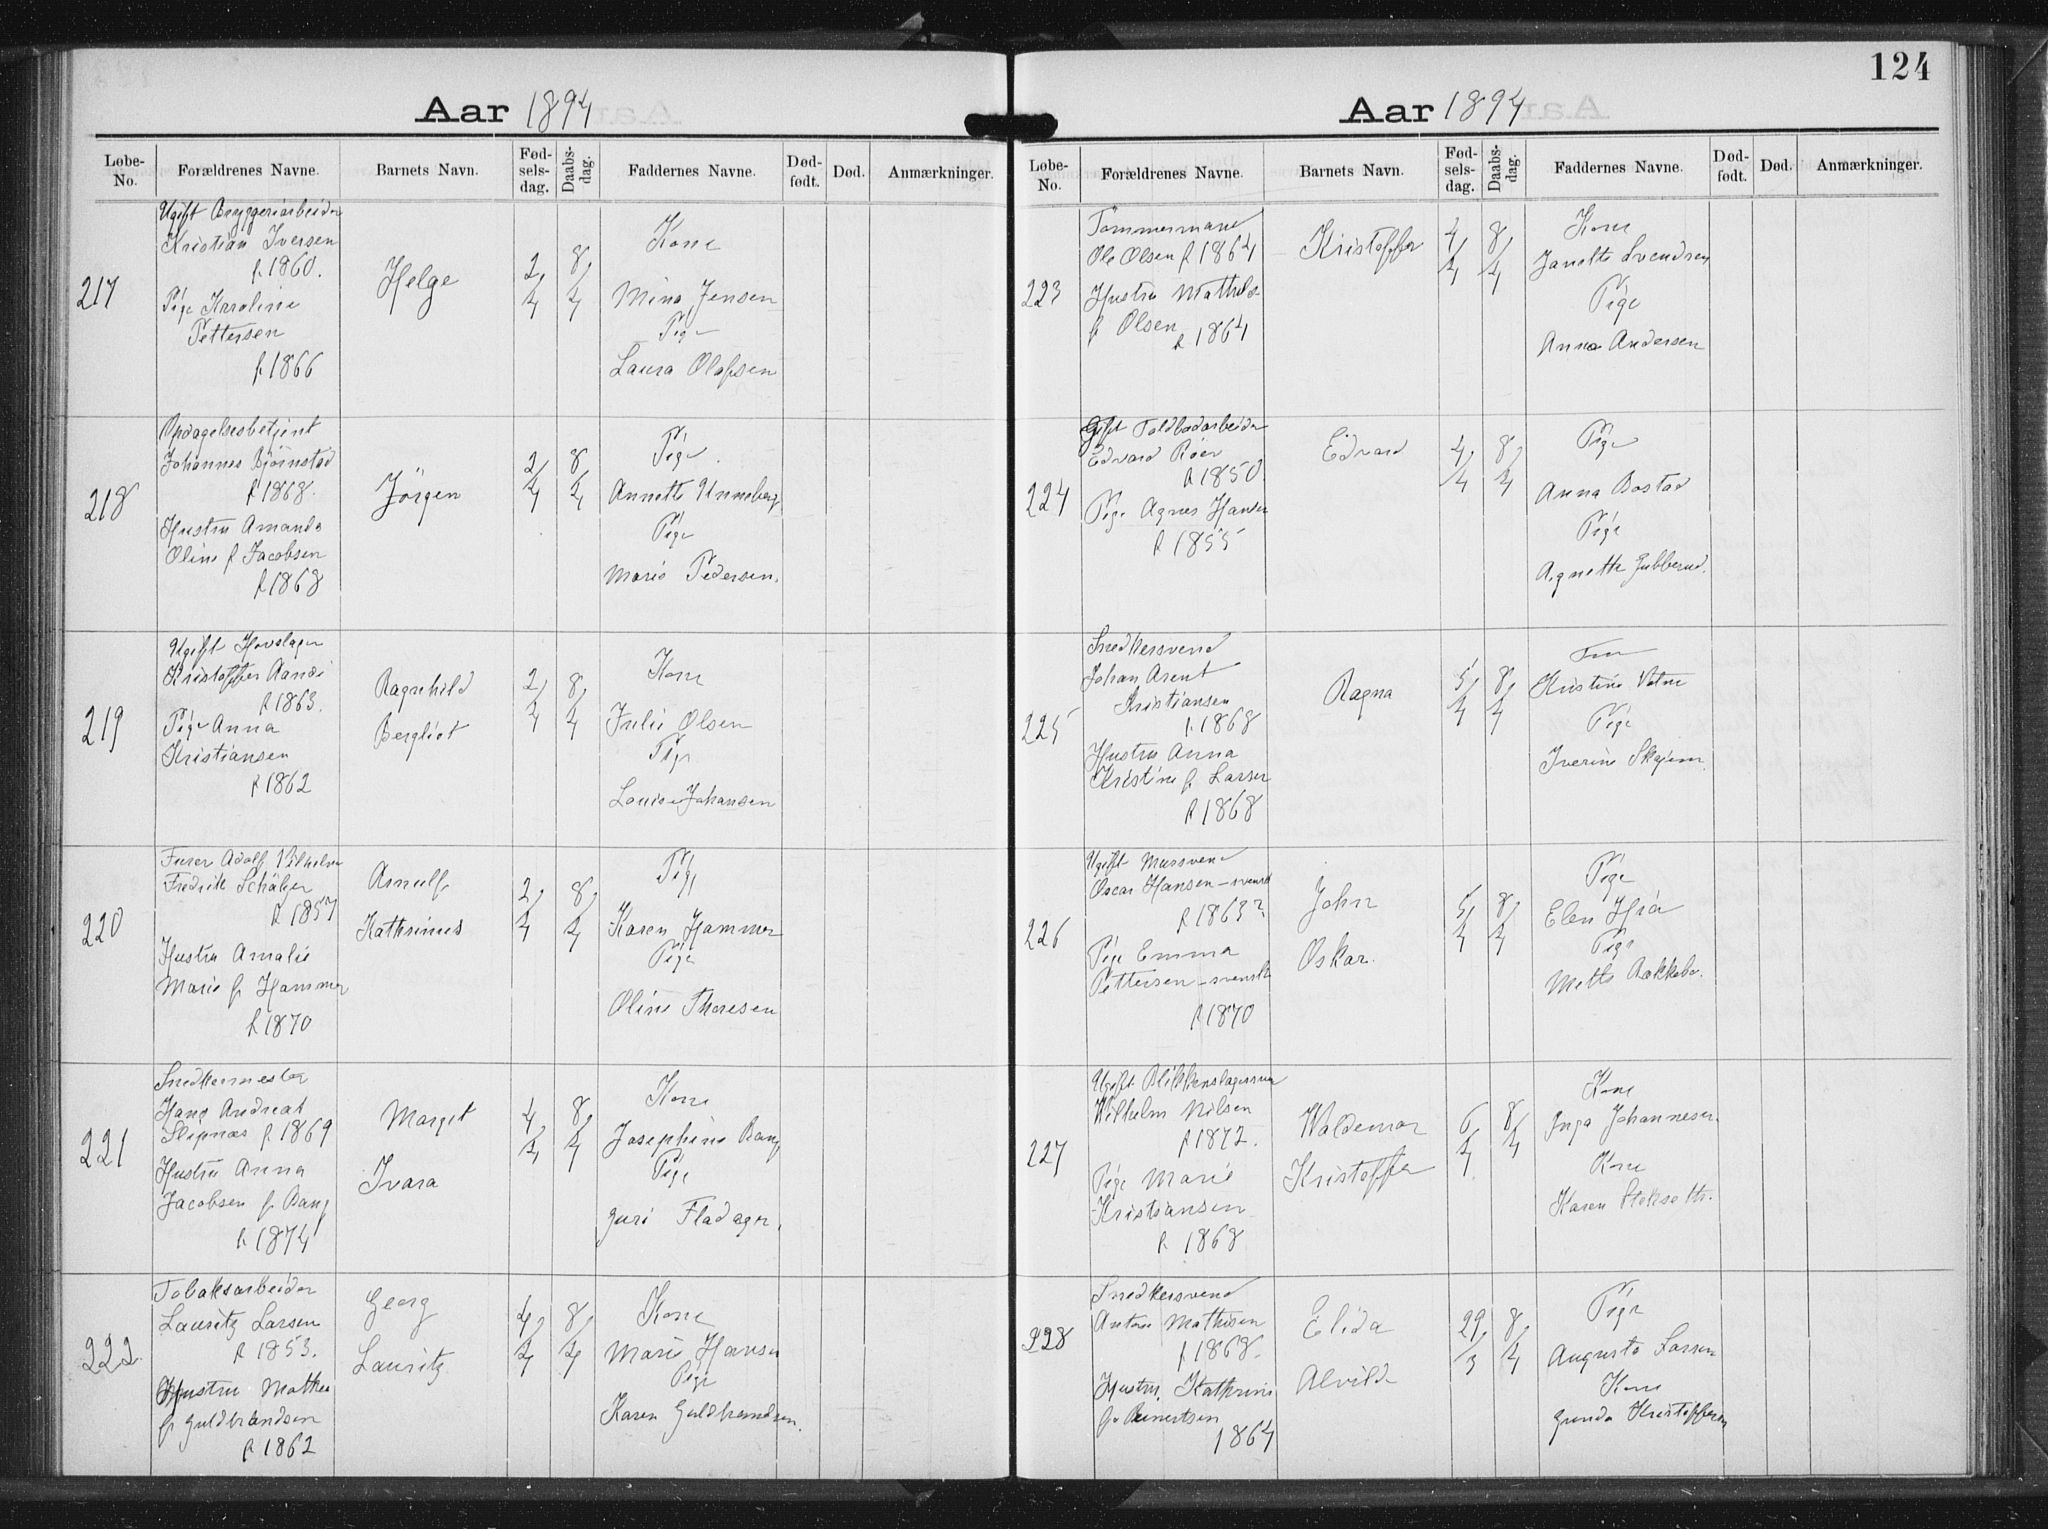 Aar 1894
Løbe-No. Forældrenes Navne. Barnets Navn. Fødselsdag. Daabsdag. Faddernes Navne. Dødfødt. Død. Anmærkninger.
217
Ugift Bryggeriarbeider
Kristian Iversen
f. 1860.
Pige Karoline
Pettersen
f. 1866
Helge
2/4
8/4
Kone
Mina Jensen
Pige
Laura Olafsen
218
Opdagelsesbetjent
Johannes Bjørnstad
f. 1868.
Hustru Amanda
Oline f. Jacobsen
f. 1868
Jörgen
2/4
8/4
Pige
Annette Unneberg
Pige
Marie Pedersen.
219
Ugift Hovslager
Kristoffer
f. 1863.
Pige Anna
Kristiansen
f. 1862
Ragnhild
Bergliot
2/4
8/4
Kone
Julie Olsen
Pige
Louise Johansen
220
Furer Adolf Vilhelm
Fredrik
f. 1857
Hustru Amalie
Marie f. Hammer
f. 1870
Arnulf
Kathrinus
2/4
8/4
Pige
Karen Hammer
Pige
Oline Thoresen
221
Snedkermester
Hans Andreas
f. 1869
Hustru Anna
Jacobsen f. Bang
f. 1874
Margit
Ivara
4/4
8/4
Kone
Josephine Bang
Pige
Guri Fladager.
222.
Tobaksarbeider
Lauritz Larsen
f. 1853.
Hustru Mathea
f. Guldbrandsen
f. 1862
Georg
Lauritz
4/4
8/4
Kone
Marie Hansen
Pige
Karen Guldbrandsen.
124
Aar 1894
Løbe-No. Forældrenes Navne. Barnets Navn. Fødselsdag. Daabsdag. Faddernes Navne. Dødfødt. Død. Anmærkninger.
223
Tømmermand
Ole Olsen f. 1864
Hustru Mathilde
f. Olsen
f. 1864
Kristoffer
4/4
8/4
Kone
Janette Svendsen
Pige
Anna Andersen
224
Gift Toldbodarbeider
Edvard
f. 1850.
Pige Agnes Hansen
f. 1855
Edvard
4/4
8/4
Pige
Anna Bostad
Pige
Agnethe Gubberud.
225
Snedkersvend
Johan Arent
Kristiansen
f. 1868
Hustru Anna
Kristine f. Larsen
f. 1868
Ragna
5/4
8/4
Kristine
Pige
Iverine
226
Ugift Mursvend
Oscar Hansen - svensk
f. 1863?
Pige Emma
Pettersen - svensk
f. 1870
John
Oskar.
5/4
8/4
Pige
Elen
Pige
Mette
227
Ugift Blikkenslagersvend
Wilhelm Nilsen
f. 1872.
Pige Marie
Kristiansen
f. 1868
Waldemar
Kristoffer
6/4
8/4
Kone
Inga Johannesen
Kone
Karen
228
Snedkersvend
Anton Mathisen
f. 1868.
Hustru Kathrine
f. Bernertsen
1864
Elida
Alvilde
29/3
8/4
Pige
Augusta Larsen
Kone
Gunda Kristoffersen